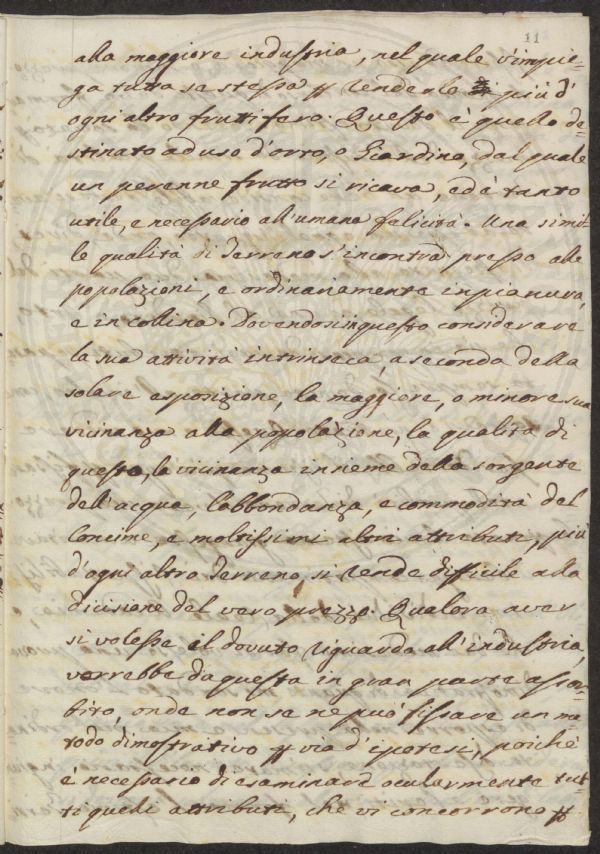 11
alla maggiore industria, nel quale s'impie-
ga tutta se stessa p renderle più d'
ogni altro fruttifero. Questo è quello de-
stinato ad uso d'orto, o Giardino, dal quale
un perenne frutto si ricava, ed è tanto
utile, e necessario all'umana felicità. Una simi-
le qualità di Terreno s'incontra presso alle
popolazioni, e ordinariamente in pianura,
e in collina. Dovendosi in questo considerare
la sua attività intrinseca, a seconda della
solare esposizione, la maggiore, o minore sua
vicinanza alla popolazione, la qualità di
questa, la vicinanza insieme della sorgente
dell'acqua, l'abbondanza, e commodità del
Concime, e moltissimi altri attributi, più
d'ogni altro Terreno, si rende difficile alla
dicisione del vero prezzo. Qualora aver
si volesse il dovuto riguardo all'industria,
verrebbe da questa in gran parte assor-
bito, onde non se ne può fissare un me
todo dimostrativo p via d'ipotesi, poichè
è necessario di esaminare ocularmente tut-
ti queli attributi, che vi concorrono p